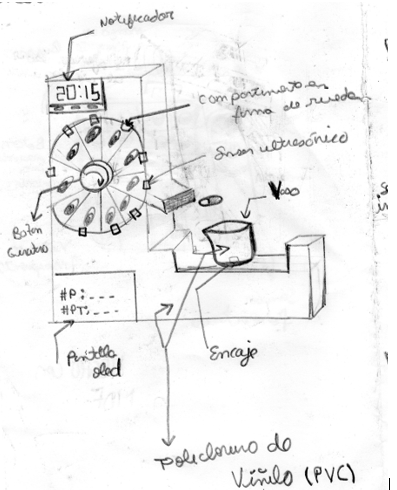 Notificador
20:15
compartimento en
forma de rueda
Sensor ultrasónico
Vaso
Botón
Giratorio
#P:---
#PT:---
Pantalla
oled
Encaje
policloruro de
Vinilo (PVC)